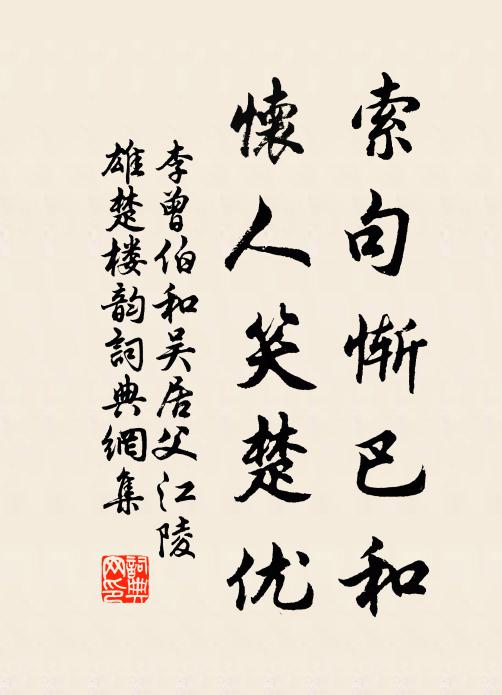 索句惭巴和
懷人笑楚优
李曾伯和吴居父江陵
雄楚楼韵詞典網集
詞典网印